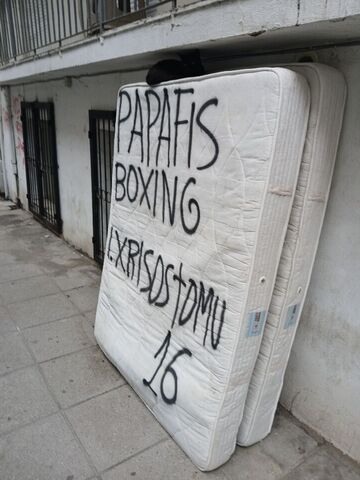 PAPAFIS
BOXING
EXRISOSTOMU
16